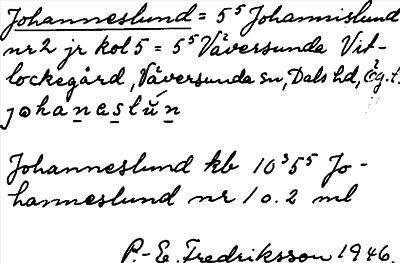 Johanneslund = 5⁵ Johannislund
nr 2 jr kol 5 = 5⁵ Väversunda Vit-
lockegård, Väversunda sn, Dals hd, Ög. l.
johaneslu̇n
Johanneslund kb 10³5⁵ Jo-
hanneslund nr 1 o. 2 ml
P.-E. Fredriksson 1946.